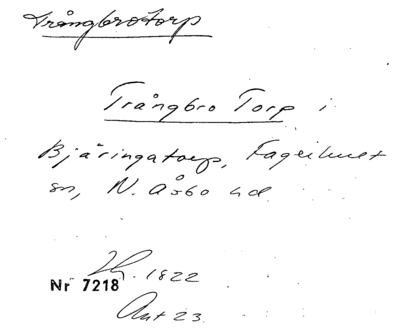 Trångbrotorp
Trångbro Torp i
Bjäringatorp, Fagerhult
sn, N. Åsbo hd
Lh. 1822
Nr 7218
Ant 23.